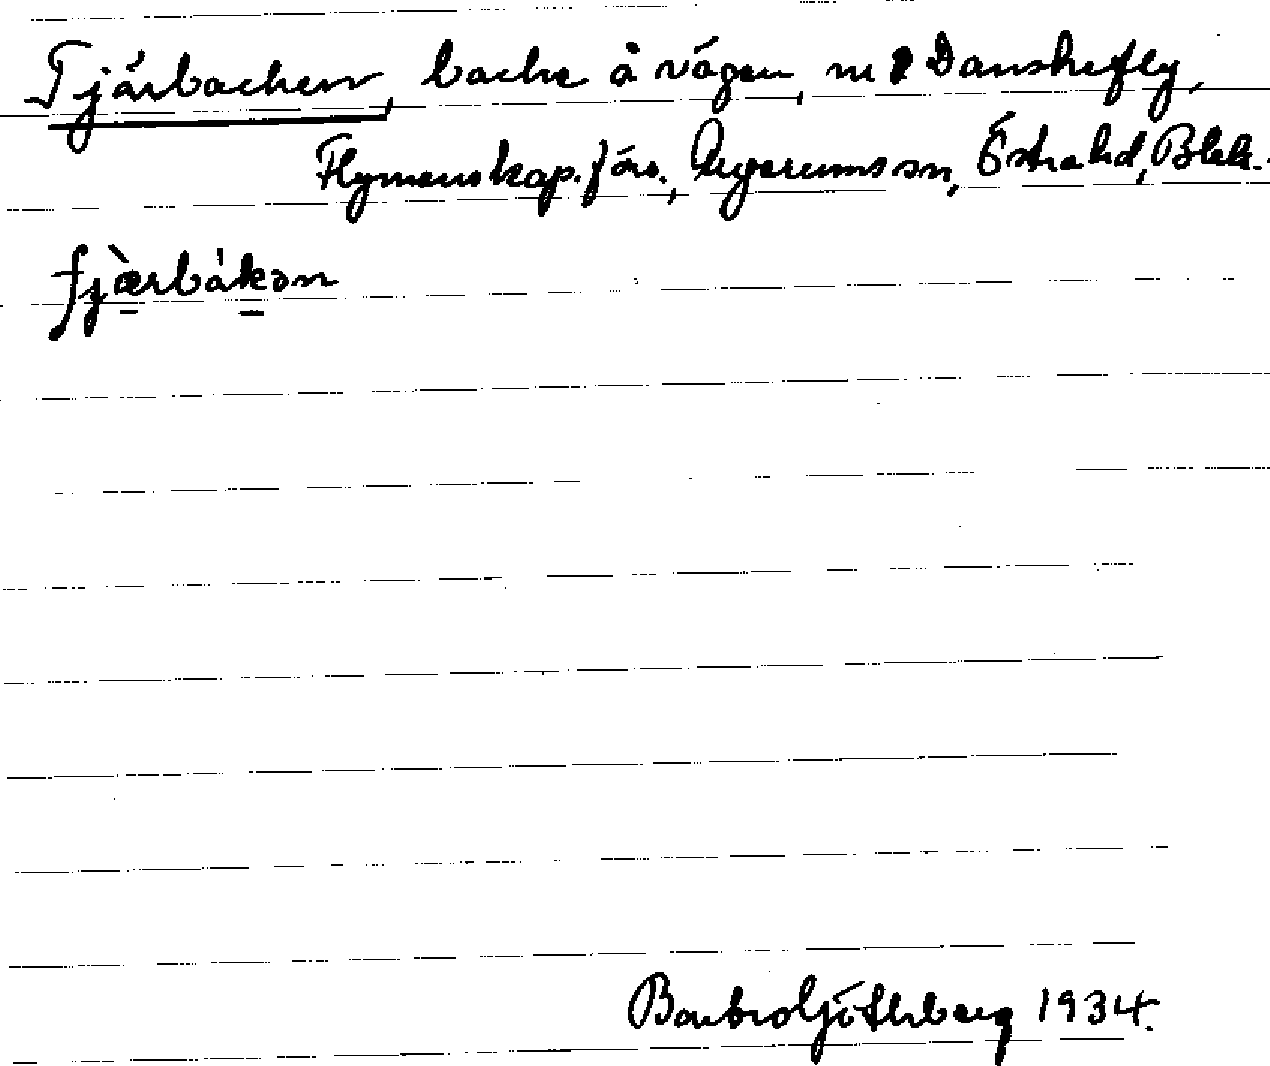 Tjärbacken, backe å vägen, Danskefly,
Flymens kap. förs., Augerums sn, Östra hd, Blek.
fjæ̀rbákən
Barbro Göthberg 1934.